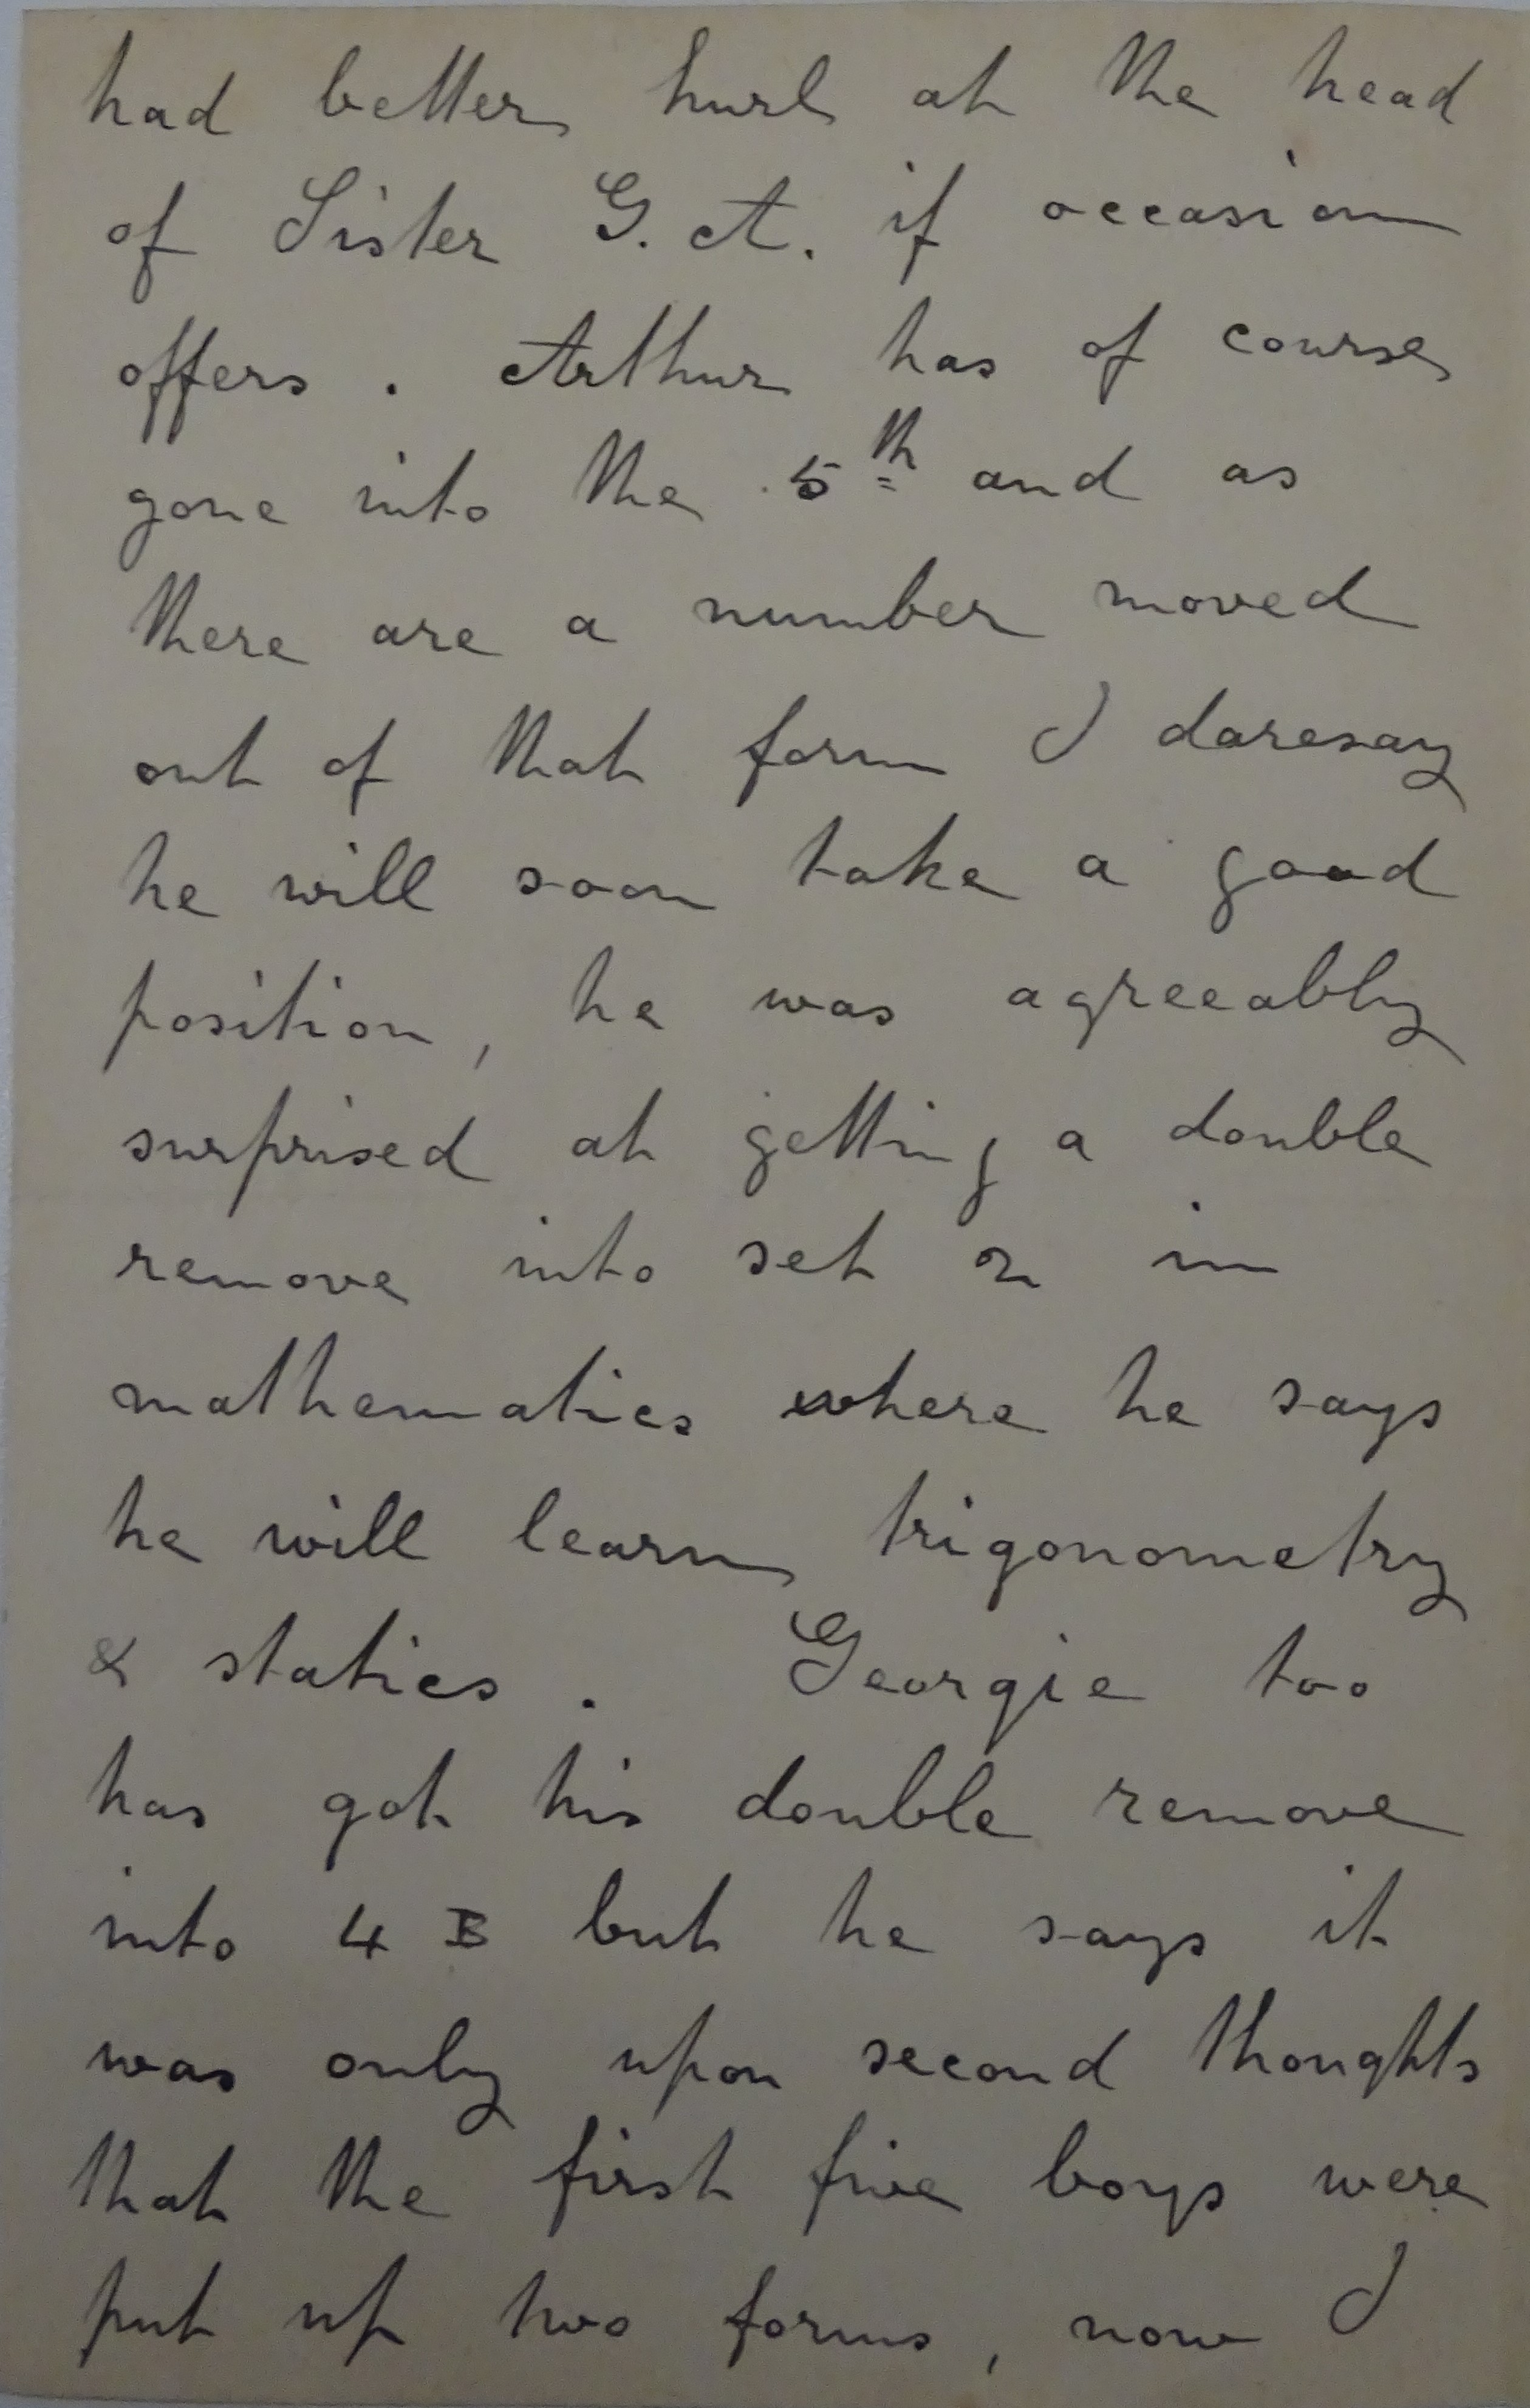 had better hurl at the head
of Sister G. A. if occasion
offers. Arthur has of course
gone into the 5th and as
there are a number moved
out of that form I daresay
he will soon take a good
position, he was agreeably
surprised at getting a double
remove into set 2 in
mathematics where he says
he will learn trigonometry
& statics. Georgie too
has got his double remove
into 4 B but he says it
was only upon second thoughts
that the first five boys were
put up two forms, now I